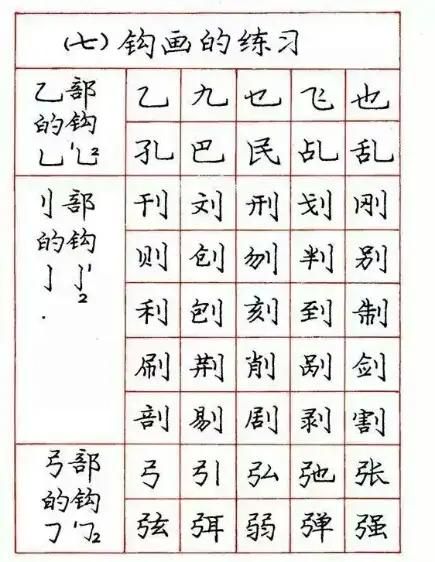 (七)钩画的练习
乙部
的钩
乚 乚 1 2
乙 九 乜 飞 也
孔 巴 民 乩 乱
刂部
的钩
亅 亅 1 2
刊 刘 刑 划 刚
则 创 刎 判 别
利 刨 刻 到 制
刷 荆 削 剐 剑
剖 剔 剧 剥 割
弓部
的钩
㇆ 1 ㇆ 2
弓 引 弘 弛 张
弦 弭 弱 弹 强